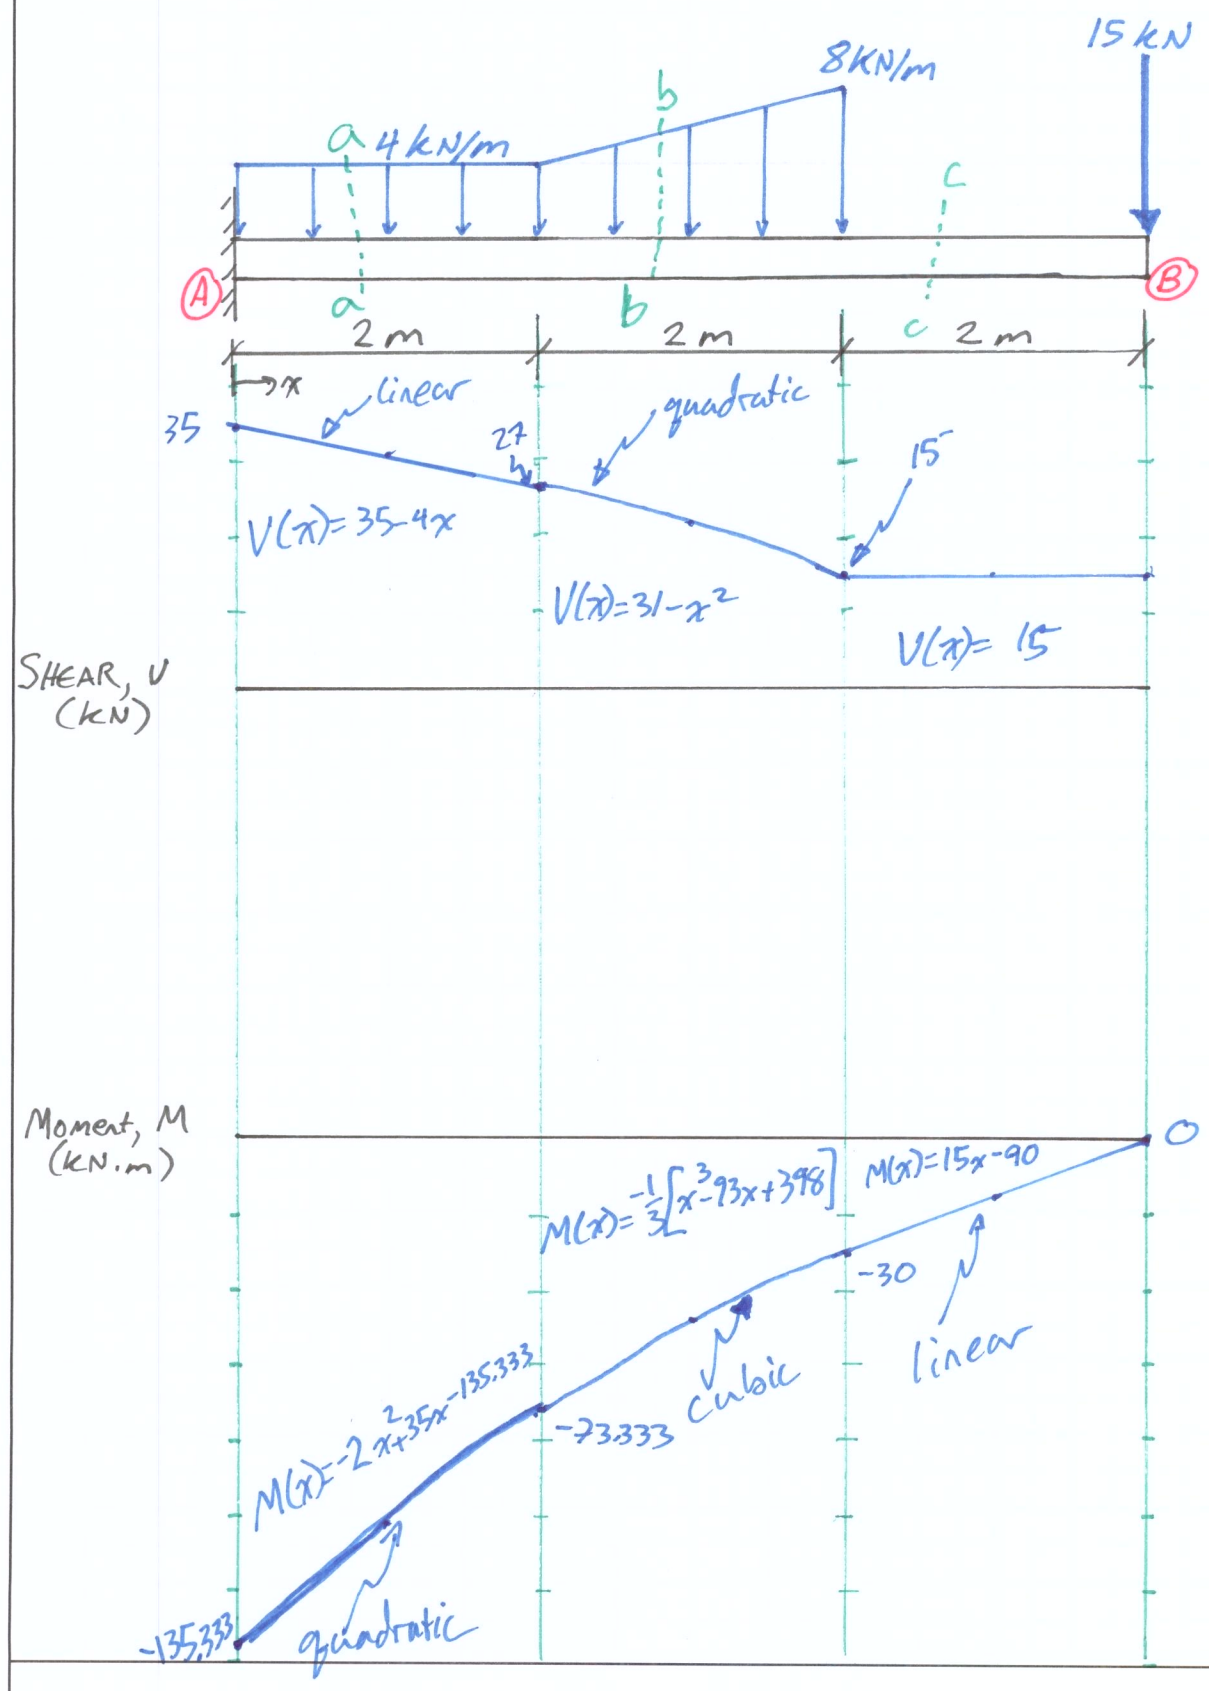 15 kN
8KN/m
b
a 4 kN/m
c
A
B
a
b
c
2 m
2 m
2 m
x
linear
quadratic
35
27
15
V(x)= 35-4x
V(x)=31-x²
V(x)= 15
SHEAR, V
(kN)
Moment, M
(kN.m)
0
M(x)= -1/3[x³-93x+398]
M(x)=15x-90
-30
linear
cubic
M(x)=-2x²+35x-135.333
-73.333
quadratic
-135.333